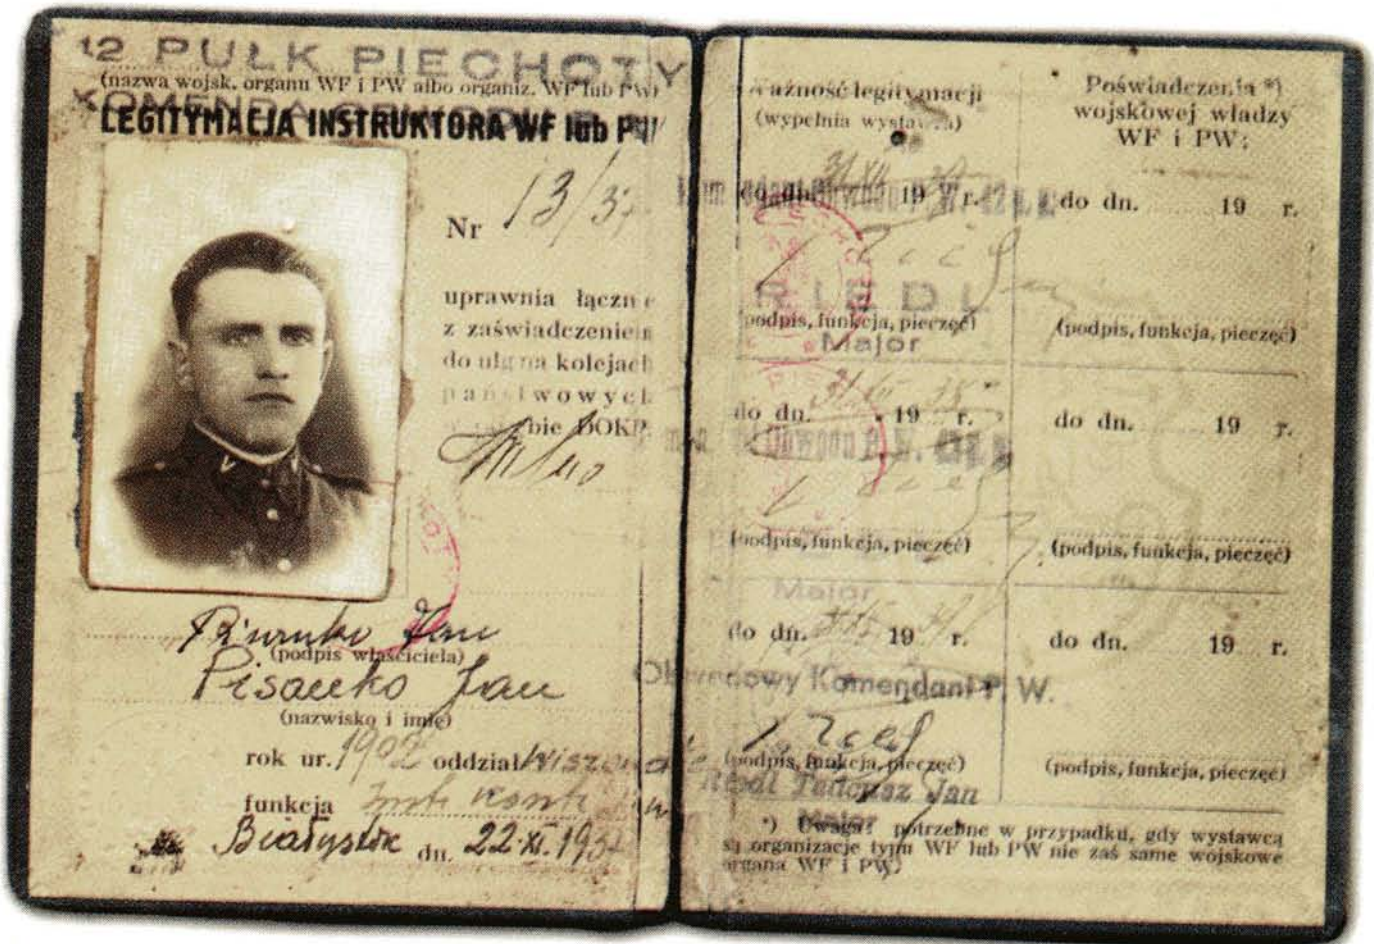 12 PUŁK PIECHOTY
(nazwa wojsk. organu WF i PW albo organiz. WF lub PW)
KOMENDA
LEGITYMACJA INSTRUKTORA WF lub PW
Nr 13/37
uprawnia łącznie
z zaświadczeniem
do ulg na kolejach
państwowych
bie DOKP.
Pisanko Jan
(podpis właściciela)
Pisanko Jan
(nazwisko i imię)
rok ur. 1902 oddział
funkcja
Białystok dn. 22 XI 193
Ważność legitymacji
(wypełnia wystawca)
do dn. 31 XII 19 r.
RIEDL
(podpis, funkcja, pieczęć)
Major
do dn. 19 38 r.
(podpis, funkcja, pieczęć)
Major
do dn. 19 r.
Obwodowy Komendant P. W.
(podpis, funkcja, pieczęć)
Riedl Tadeusz Jan
Major
Poświadczenia *)
wojskowej władzy
WF i PW:
do dn. 19 r.
(podpis, funkcja, pieczęć)
do dn. 19 r.
(podpis, funkcja, pieczęć)
do dn. 19 r.
(podpis, funkcja, pieczęć)
*) Uwaga: potrzebne w przypadku, gdy wystawcą
są organizacje typu WF lub PW nie zaś same wojskowe
organa WF i PW)